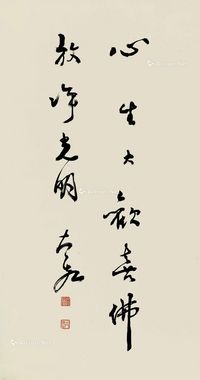 心生大歡喜佛
放淨光明 大嚴